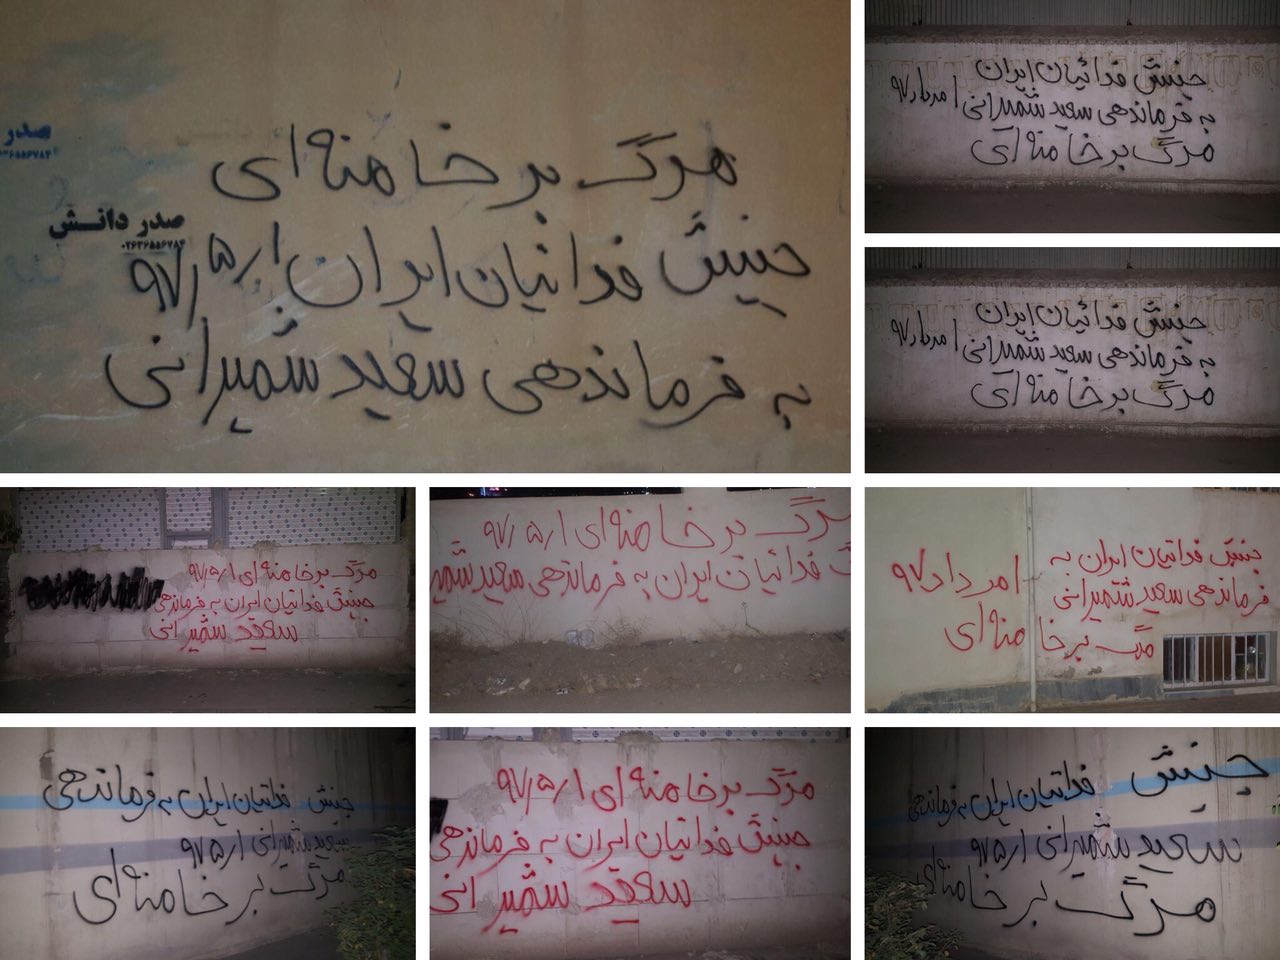 مرگ بر خامنه ای
جنبش فدائیان ایران ۹۷/۵/۱
به فرماندهی سعید شمیرانی
صدر
صدر دانش
جنبش فدائیان ایران
به فرماندهی سعید شمیرانی ۱ مرداد ۹۷
مرگ بر خامنه ای
جنبش فدائیان ایران
به فرماندهی سعید شمیرانی ۱ مرداد ۹۷
مرگ بر خامنه ای
مرگ بر خامنه ای ۹۷/۵/۱
جنبش فدائیان ایران به فرماندهی
سعید شمیرانی
مرگ بر خامنه ای ۹۷/۵/۱
فدائیان ایران به فرماندهی سعید شمیر
جنبش فدائیان ایران به
فرماندهی سعید شمیرانی ۱ مرداد ۹۷
مرگ بر خامنه ای
جنبش فدائیان ایران به فرماندهی
سعید شمیرانی ۹۷/۵/۱
مرگ بر خامنه ای
مرگ بر خامنه ای ۹۷/۵/۱
جنبش فدائیان ایران به فرماندهی
سعید شمیرانی
جنبش فدائیان ایران به فرماندهی
سعید شمیرانی ۹۷/۵/۱
مرگ بر خامنه ای